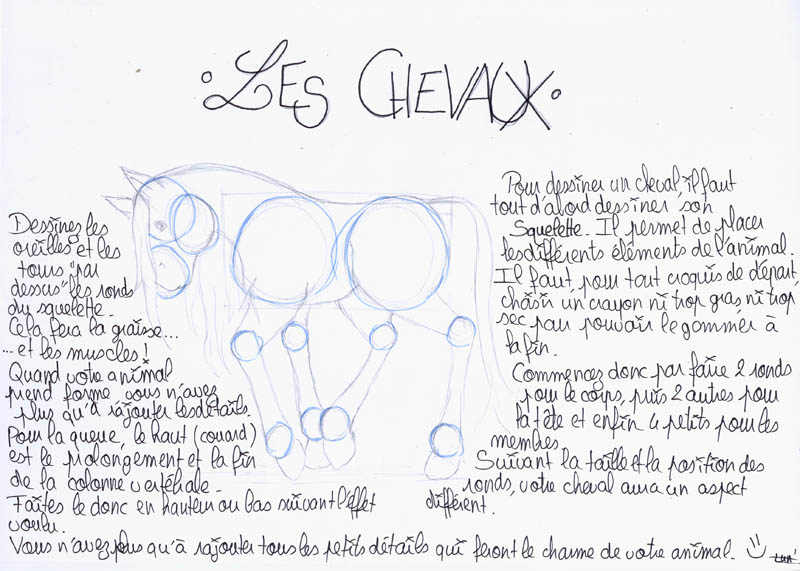 Les Chevaux
Pour dessiner un cheval, il faut
tout d'abord dessiner son
Squelette. Il permet de placer
les différents éléments de l'animal.
Il faut, pour tout croquis de départ,
choisir un crayon ni trop gras, ni trop
sec pour pouvoir le gommer à
la fin.
Commencez donc par faire 2 ronds
pour le corps, puis 2 autres pour
la tête et enfin 4 petits pour les
membres.
Suivant la taille et la position des
ronds, votre cheval aura un aspect
différent.
Dessinez les
oreilles et les
tours "par
dessus" les ronds
du squelette.
Cela fera la graisse...
...et les muscles !
Quand votre animal
prend forme vous n'avez
plus qu'à rajouter les détails.
Pour la queue, le haut (couard)
est le prolongement et la fin
de la colonne vertébrale.
Faites le donc en hauteur ou bas suivant l'effet
voulu.
Vous n'avez plus qu'à rajouter tous les petits détails qui feront le charme de votre animal.